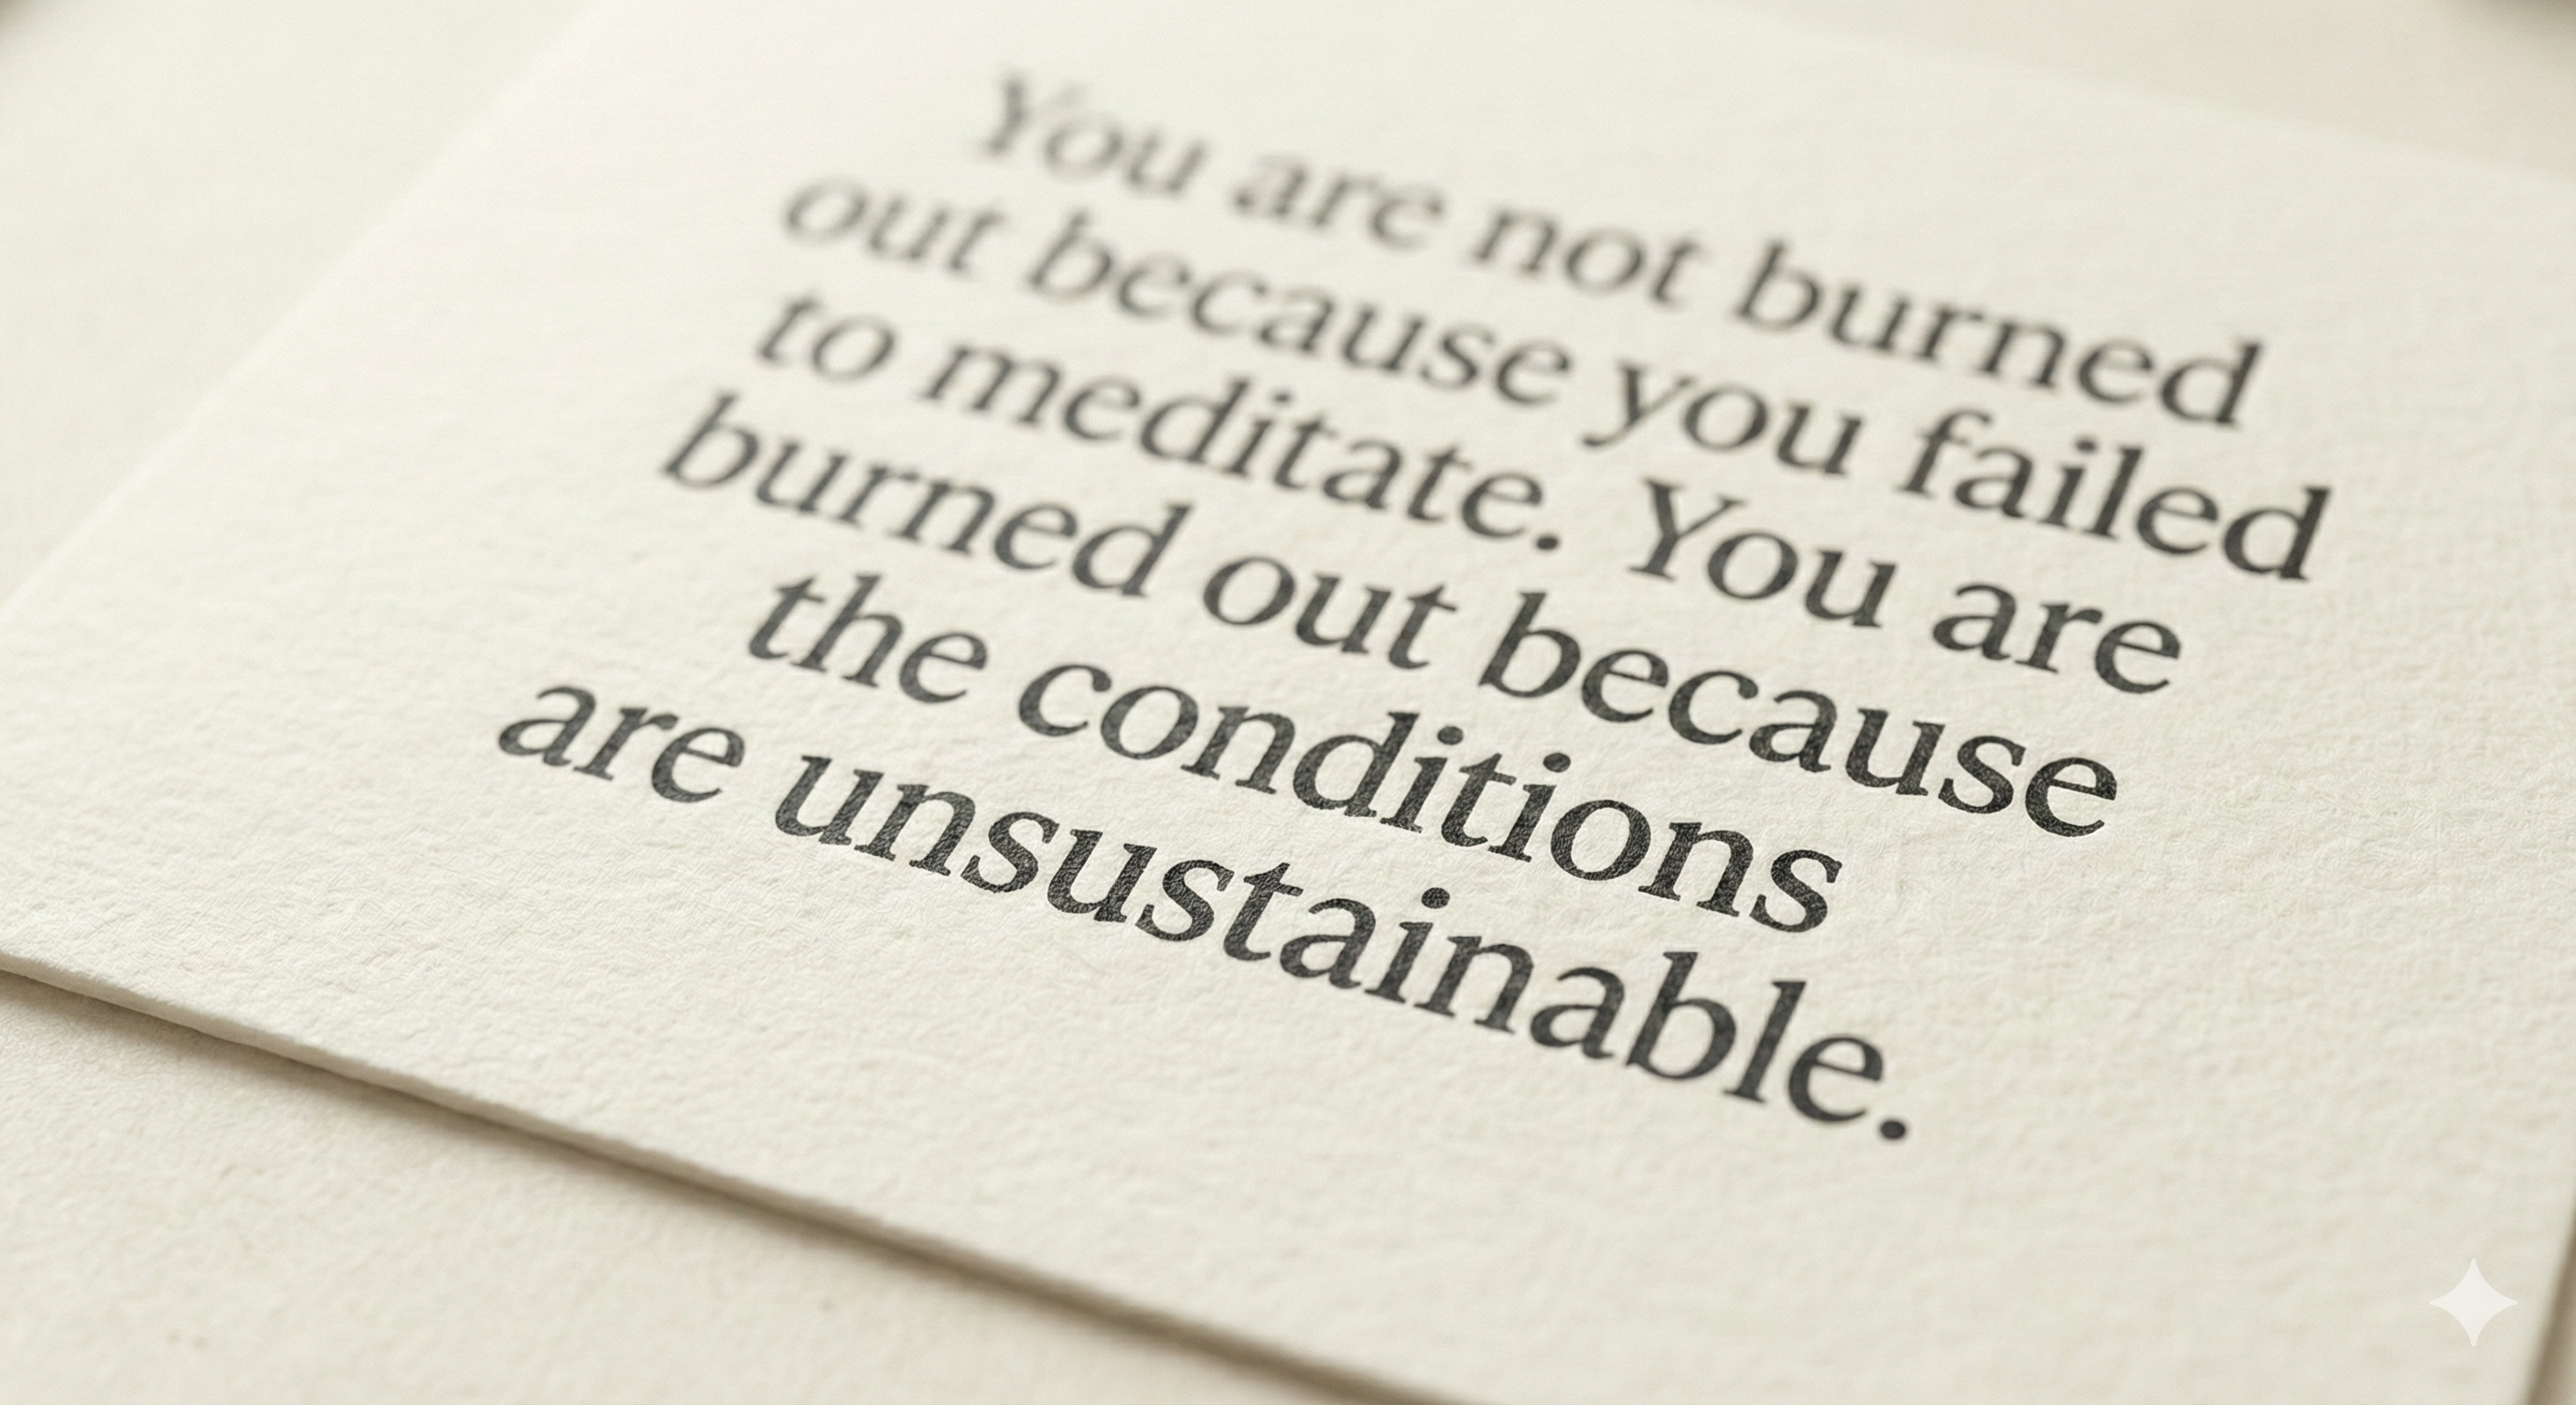 You are not burned
out because you failed
to meditate. You are
burned out because
the conditions
are unsustainable.